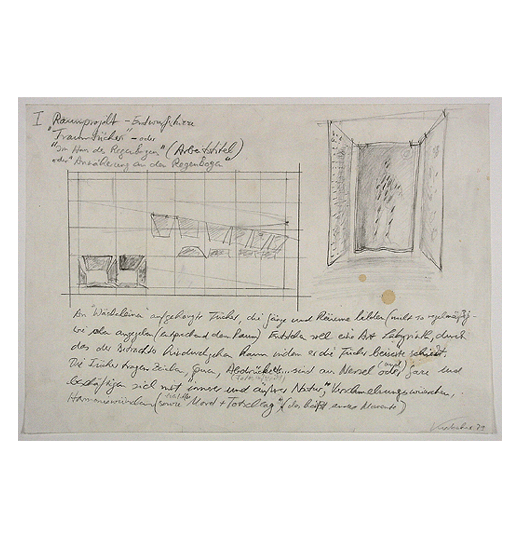 I Raumprojekt - Entwurfskizze
"Traumtücher" - oder
"Im Haus des Regenbogens" (Arbeitstitel)
oder "Annäherung an den Regenbogen"
An "Wäscheleinen" aufgehängte Tücher, die Gänge und Räume bilden (nicht so regelmäßig
wie oben angegeben (entsprechend dem Raum) Entstehen soll eine Art Labyrinth, durch
das der Betrachter hindurchgehen kann indem er die Tücher beiseite schiebt.
Die Tücher tragen Zeichen, Spuren, Abdrücke... sind aus Nessel oder Gaze und
beschäftigen sich mit innerer und äußerer Natur, Verschmelzungswünschen,
"Mord + Totschlag" (das heißt